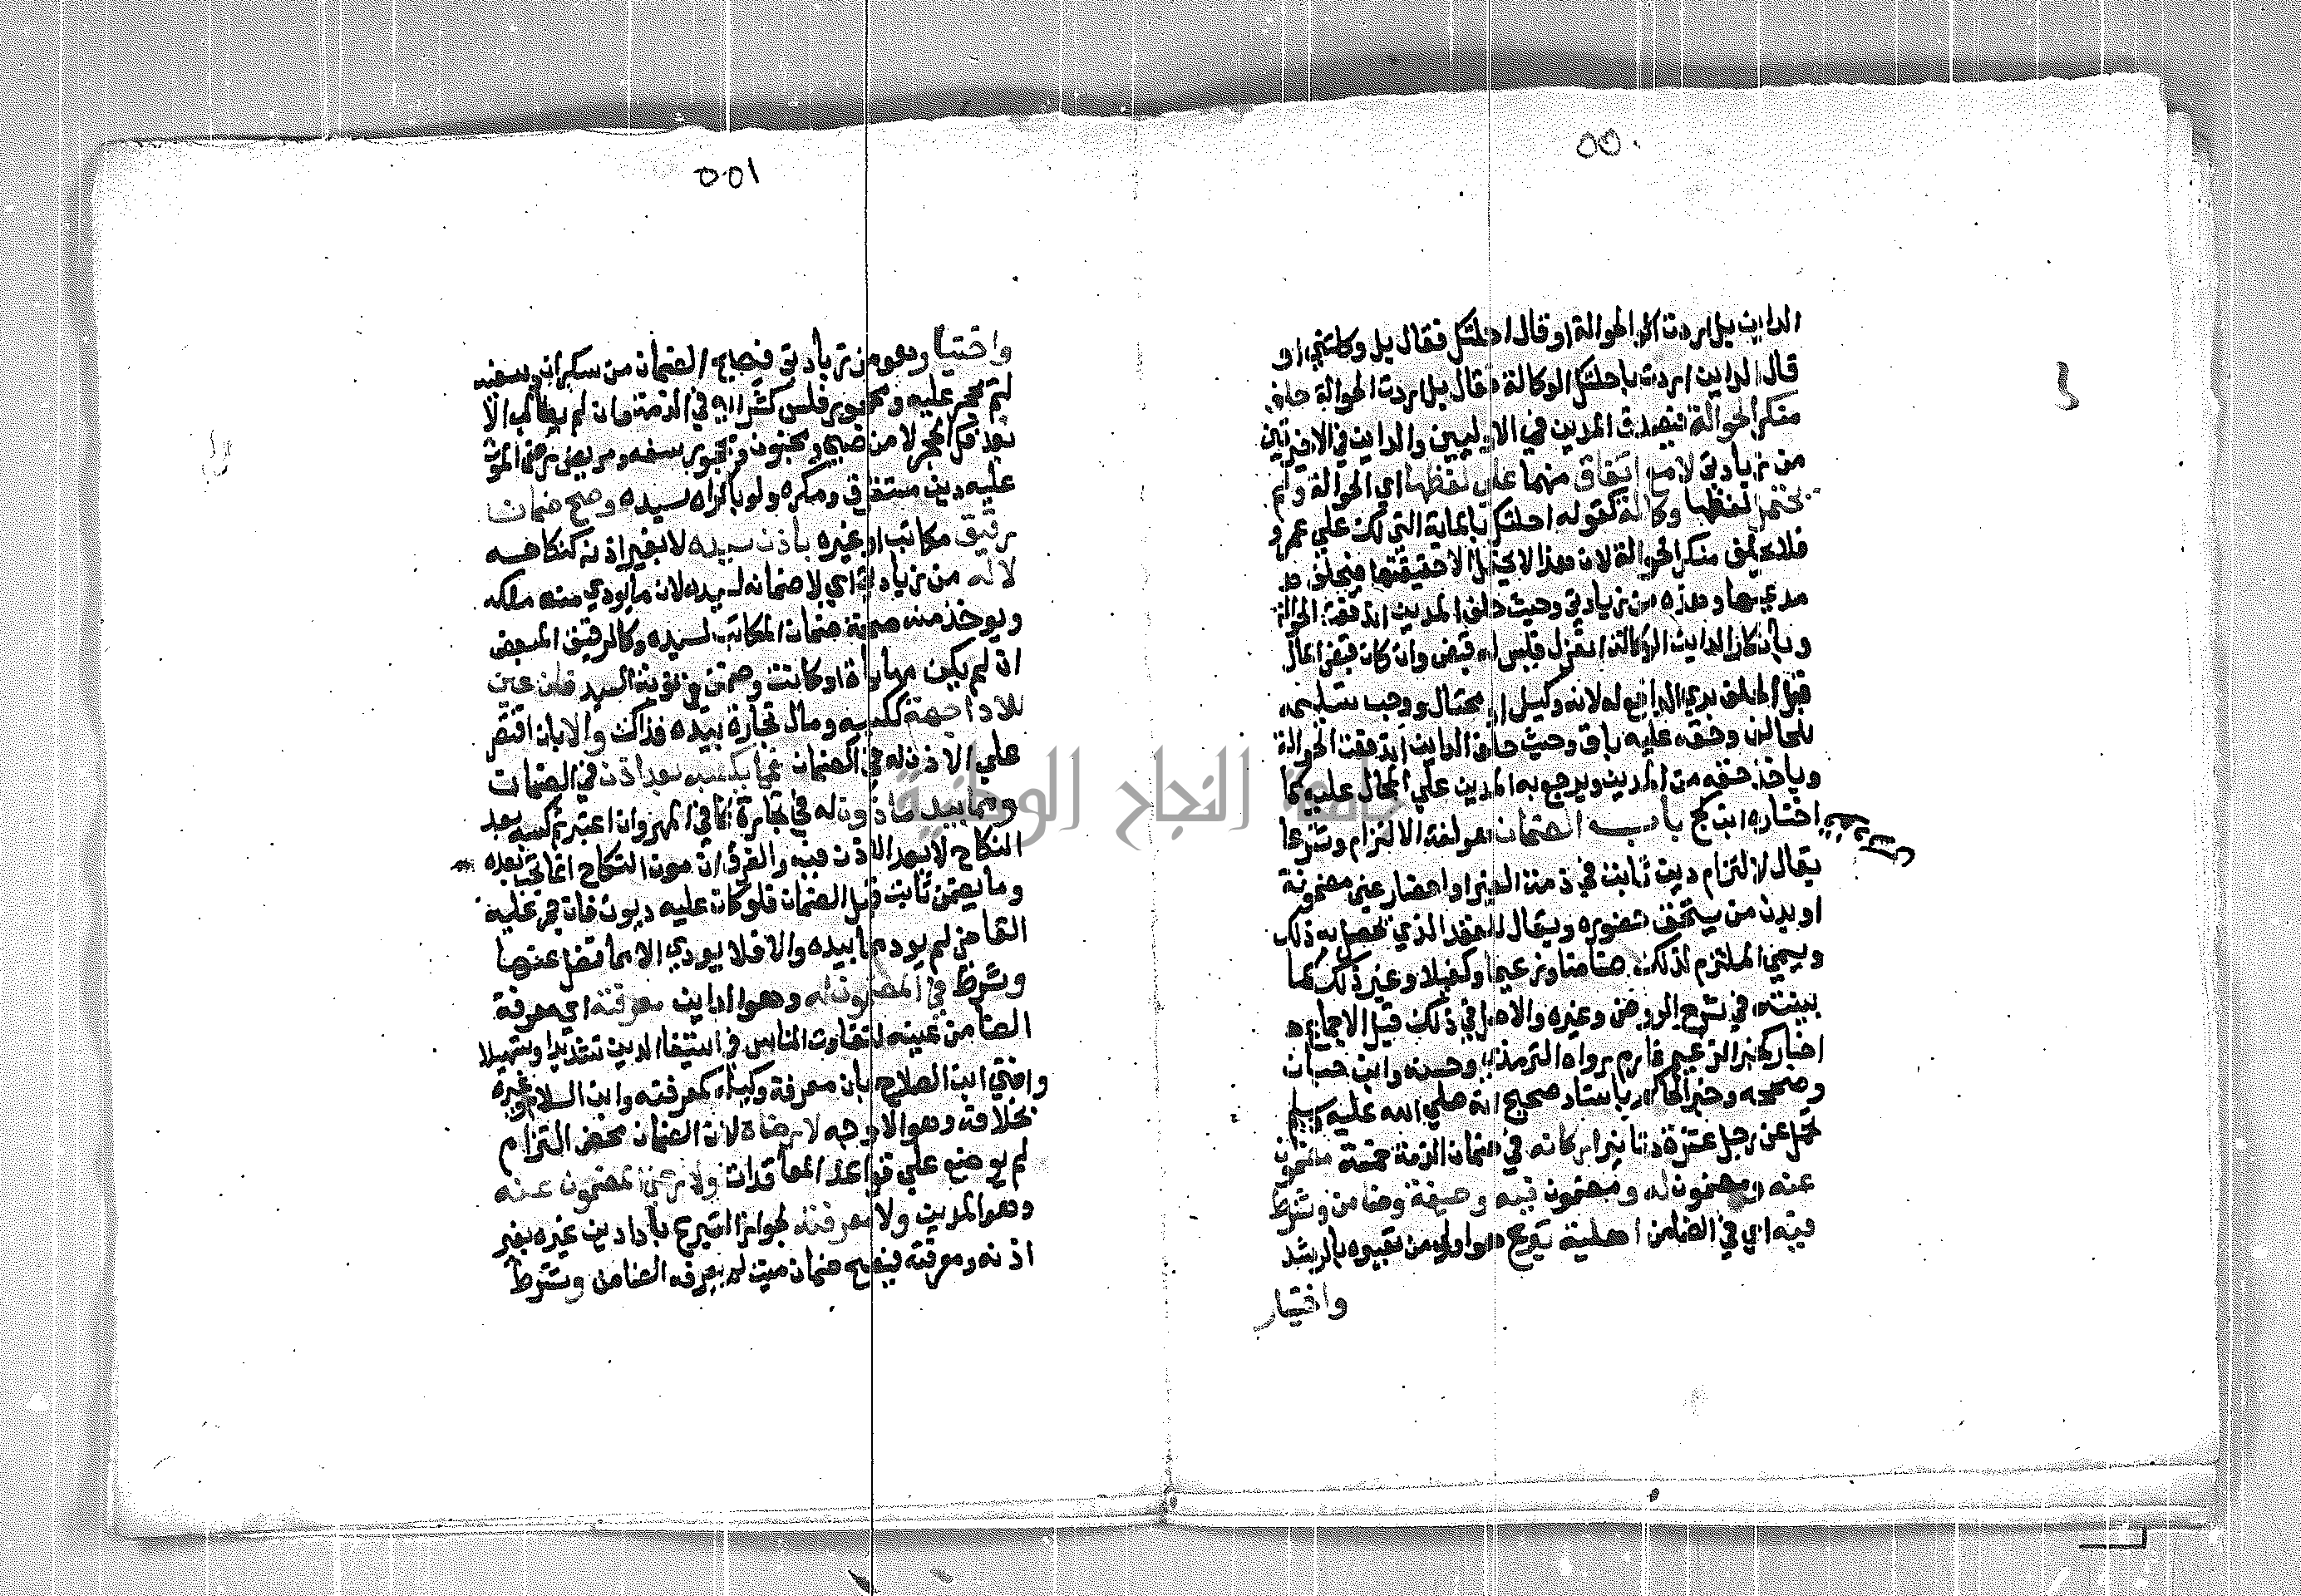 ٥٥٠
الداين بل اردت الحوالة او قال احلتك فقال بل وكلتني او
قال الداين اردت باحلتك الوكالة فقال بل اردت الحوالة حلف
منكر الحوالة فيصدق المدين في الاوليين والداين في الاخرتين
من زيادتي لا مع اتفاق منهما على لفظها اي الحوالة ولم
يحتمل لفظها وكالة كقوله احلتك بالماية التي لك علي عمرو
فلا يحلف منكر الحوالة لان هذا لا يحتمل الا حقيقتها فيحلف
مدعيها وهذه من زيادتي وحيث حلف المدين اندفعت الحوالة
وبانكار الداين الوكالة انعزل فليس له قبض وان كان قبض المال
قبل الحلف بري الدافع له لانه وكيل او محتال ووجب تسليمه
للحالف وحقه عليه باق وحيث حلف الداين اندفعت الحوالة
وياخذ حقه من المدين ويرجع به المدين علي المحال عليه كما
اختاره ابن كج باب الضمان هو لغة الالتزام وشرعا
يقال لالتزام دين ثابت في ذمة الغير او احضار عين مضمونة
او بدن من يستحق حضوره ويقال للعقد الذي يحصل به ذلك
ويسمي الملتزم لذلك ضامنا وزعيما وكفيلا وغير ذلك كما
بينته في شرح الروض وغيره والاصل في ذلك قبل الاجماع
اخبار كخبر الزعيم غارم رواه الترمذي وحسنه وابن حبان
وصححه وخبر الحاكم باسناد صحيح انه صلي الله عليه وسلم
تحمل عن رجل عشرة دنانير اركانه في ضمان الذمة خمسة مضمون
عنه ومضمون له ومضمون فيه وصيغة وضامن وشرط
فيه اي في الضامن اهلية تبرع هو اولي من تعبيره بالرشد
واختيار
٥٥١
واختيار وهو من زيادتي فيصح الضمان من سكران وسفيه
لم يحجر عليه ومحجور فلس كشرائه في الذمة وان لم يطالب الا
بعد فك الحجر لا من صبي ومجنون ومحجور سفه ومريض مرض الموت
عليه دين مستغرق ومكره ولو باكراه سيده وصح ضمان
رقيق مكاتب او غيره باذن سيده لا بغير اذنه كنكاحه
لا له من زيادتي اي لا ضمانه لسيده لان ما يودي منه ملكه
ويوخذ منه صحة ضمان المكاتب لسيده وكالرقيق المبعض
ان لم يكن مهاياة او كانت وضمن في نوبة السيد فان عين
للاداء جهة ككسبه ومال تجارة بيده فذاك والا بان اقتصر
علي الاذن له في الضمان فمما يكسبه بعد اذن في الضمان
ومما بيد ماذون له في تجارة كما في المهر وان اعتبر ثم كسبه بعد
النكاح لا بعد الاذن فيه والفرق ان مون النكاح انما تجب بعده
وما يضمن ثابت قبل الضمان فلو كان عليه ديون فان حجر عليه
القاضي لم يود مما بيده والا فلا يودي الا بما فضل عنها
وشرط في المضمون له وهو الداين معرفته اي معرفة
الضامن عينه لتفاوت الناس في استيفا الدين تشديدا وتسهيلا
وافتي ابن الصلاح بان معرفة وكيله كمعرفته وابن السلام وغيره
بخلافه وهو الاوجه لا رضاه لان الضمان محض التزام
لم يوضع علي قواعد المعاقدات ولا رضي المضمون عنه
وهو المدين ولا معرفته لجواز التبرع باداء دين غيره بغير
اذنه ومعرفته فيصح ضمان ميت لم يعرفه الضامن وشرط
جامعة النجاح الوطنية